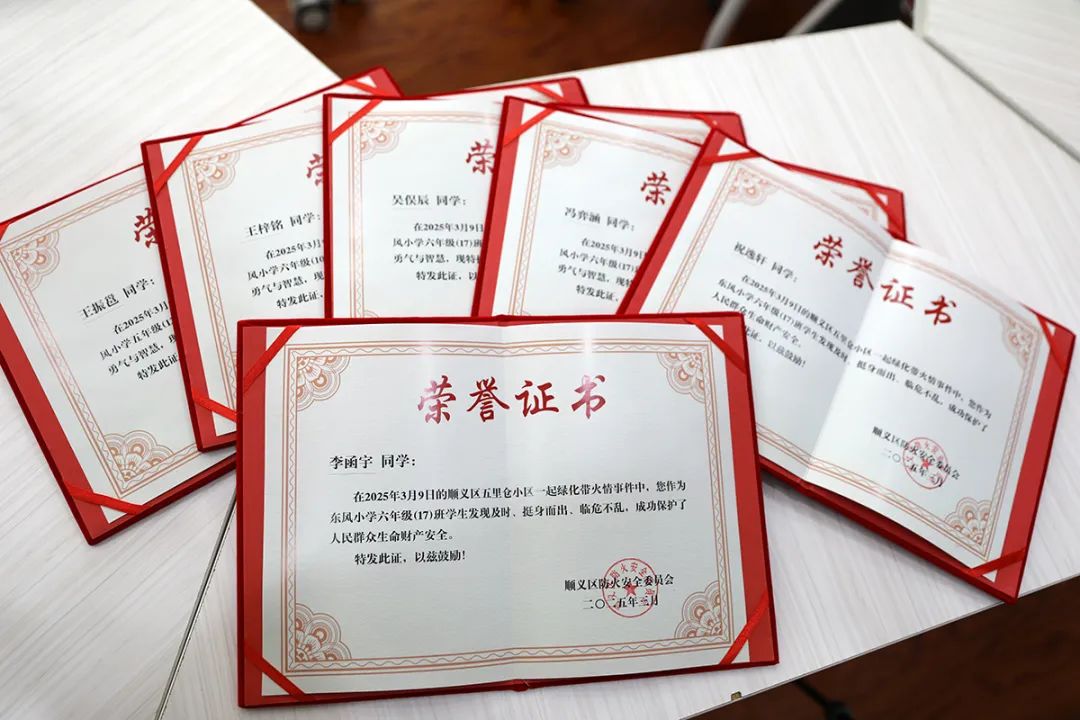 荣
王振邑 同学：
在2025年3月
风小学五年级(1
勇气与智慧，现
特发此证，
荣
王梓铭 同学：
在2025年3月9
风小学六年级(10
勇气与智慧，现
特发此证，
荣
吴俣辰 同学：
在2025年3月9日
风小学六年级(17)班
勇气与智慧，现特
特发此证，以
荣
冯弈涵 同学：
在2025年3月9日
风小学六年级(17)
勇气与智慧，现
特发此证，以
荣誉证书
祝逸轩 同学：
在2025年3月9日的顺义区五里仓小区一起绿化带火情事件中，您作为
东风小学六年级(17)班学生发现及时、挺身而出、临危不乱，成功保护了
人民群众生命财产安全。
证，以兹鼓励！
顺义区防火安全委员会
二〇二五年三月
荣誉证书
李函宇 同学：
在2025年3月9日的顺义区五里仓小区一起绿化带火情事件中，您作为
东风小学六年级(17)班学生发现及时、挺身而出、临危不乱，成功保护了
人民群众生命财产安全。
特发此证，以兹鼓励！
顺义区防火安全委员会
二〇二五年三月